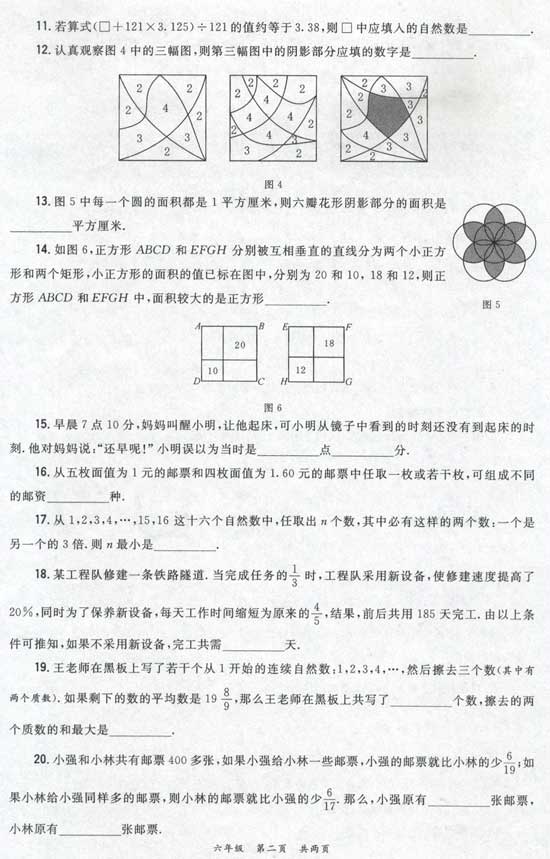 11. 若算式(□+121×3.125)÷121的值约等于3.38,则□中应填入的自然数是________.
12. 认真观察图4中的三幅图,则第三幅图中的阴影部分应填的数字是________.
2 2 2 4 3 3 2
2 2 2 2 4 3 2 2
2 3 3 2 2 3 3 2 2
图4
13. 图5中每一个圆的面积都是1平方厘米,则六瓣花形阴影部分的面积是
________平方厘米.
14. 如图6,正方形ABCD和EFGH分别被互相垂直的直线分为两个小正方
形和两个矩形,小正方形的面积的值已标在图中,分别为20和10,18和12,则正
方形ABCD和EFGH中,面积较大的是正方形________.
图5
A B E F
20 18
10 12
D C H G
图6
15. 早晨7点10分,妈妈叫醒小明,让他起床,可小明从镜子中看到的时刻还没有到起床的时
刻.他对妈妈说:“还早呢!”小明误以为当时是________点________分.
16. 从五枚面值为1元的邮票和四枚面值为1.60元的邮票中任取一枚或若干枚,可组成不同
的邮资________种.
17. 从1,2,3,4,…,15,16这十六个自然数中,任取出n个数,其中必有这样的两个数:一个是
另一个的3倍.则n最小是________.
18. 某工程队修建一条铁路隧道.当完成任务的1/3时,工程队采用新设备,使修建速度提高了
20%,同时为了保养新设备,每天工作时间缩短为原来的4/5,结果,前后共用185天完工.由以上条
件可推知,如果不采用新设备,完工共需________天.
19. 王老师在黑板上写了若干个从1开始的连续自然数:1,2,3,4,…,然后擦去三个数(其中有
两个质数).如果剩下的数的平均数是19 8/9,那么王老师在黑板上共写了________个数,擦去的两
个质数的和最大是________.
20. 小强和小林共有邮票400多张,如果小强给小林一些邮票,小强的邮票就比小林的少6/19;如
果小林给小强同样多的邮票,则小林的邮票就比小强的少6/17.那么,小强原有________张邮票,
小林原有________张邮票.
六年级 第二页 共两页